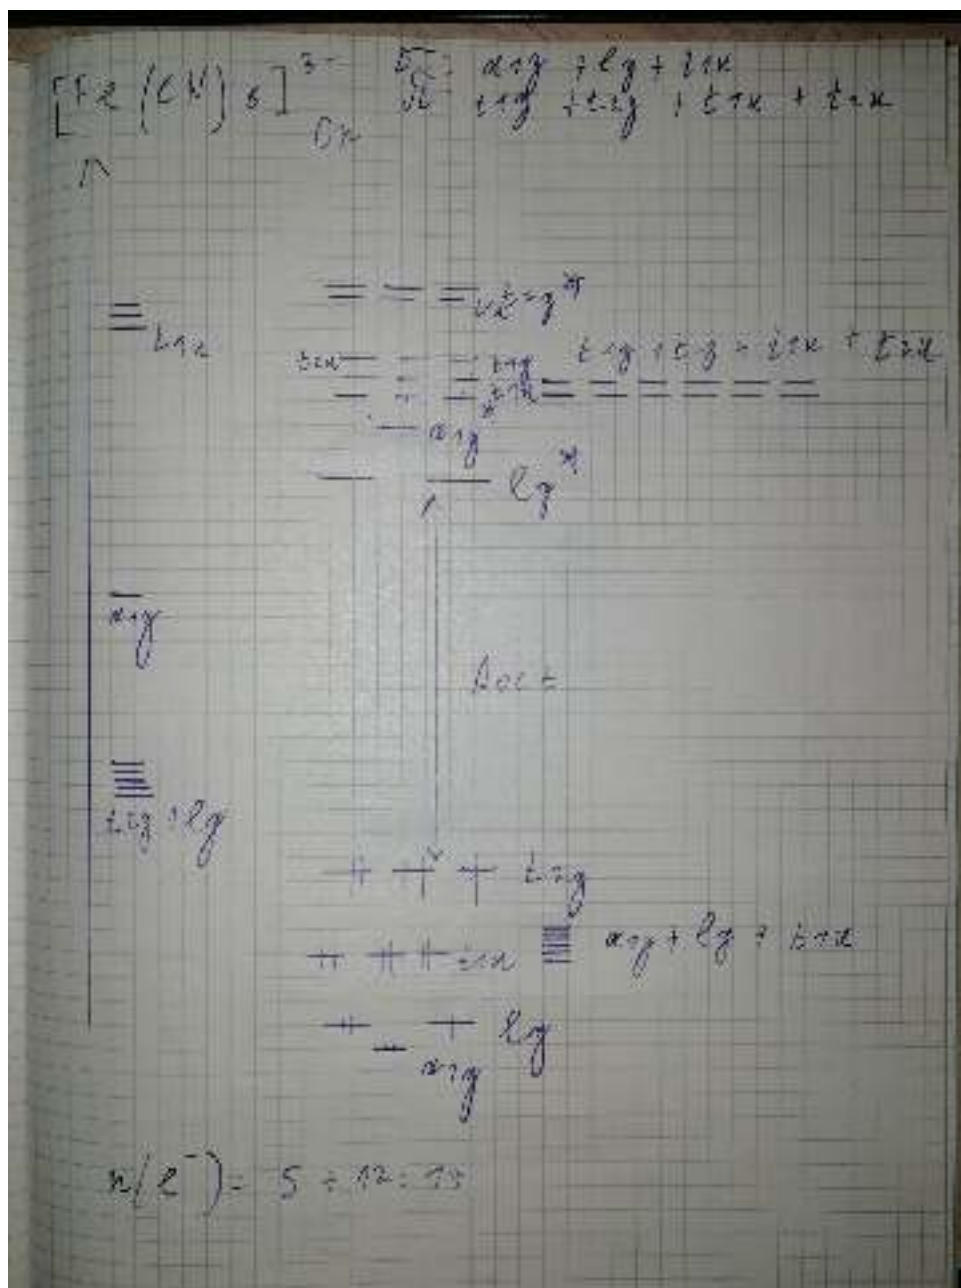 [Fe(CN)6]3-
σ: a1g + eg + t1u
Oh
π: t1g + t2g + t1u + t2u
t2g*
t1u
t2u
t1g
t1g + t2g + t1u + t2u
t1u
a1g*
eg*
a1g
Δoct
t2g + eg
t2g
a1g + eg + t1u
t1u
eg
a1g
n(e-) = 5 + 12 = 17